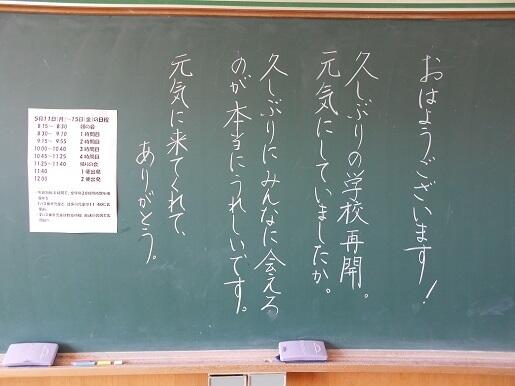 おはようございます!
久しぶりの学校再開。
元気にしていましたか。
久しぶりにみんなに会える
のが本当にうれしいです。
元気に来てくれて、
ありがとう。
5月11日(月)~15日(金)の日程
8:15~ 8:30 朝の会
8:30~ 9:10 1時間目
9:15~ 9:55 2時間目
10:00~10:40 3時間目
10:45~11:25 4時間目
11:25~11:40 帰りの会
11:40 1便出発
12:00 2便出発